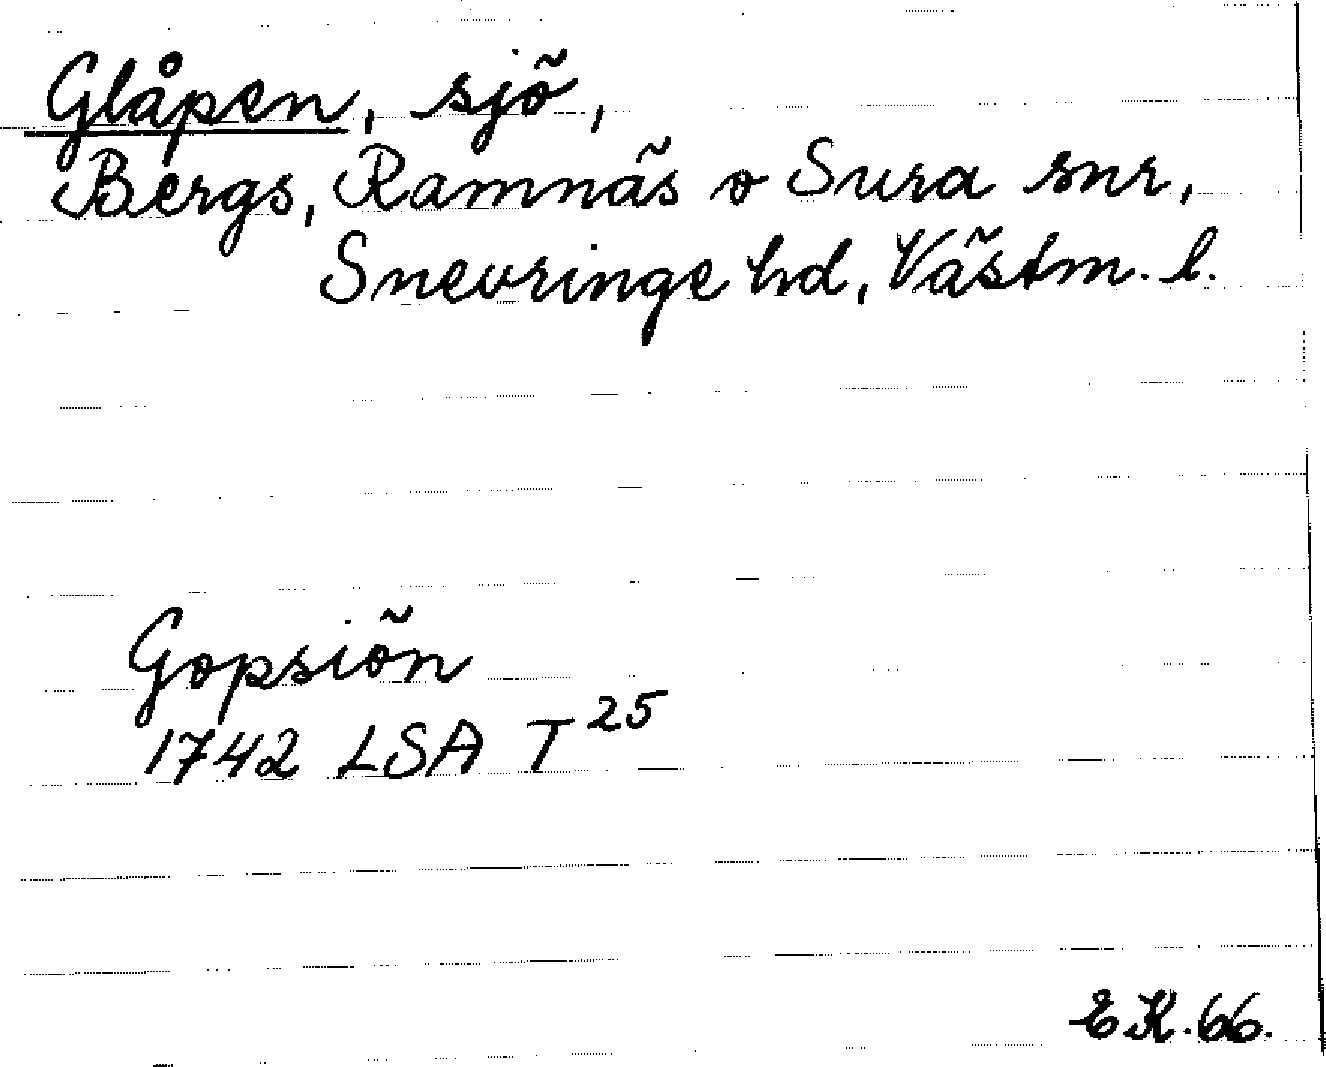 Glåpen, sjö,
Bergs, Ramnäs o Sura snr,
Snevringe hd, Västm. l.
Gopsiön
1742 LSA T 25
EK. 66.